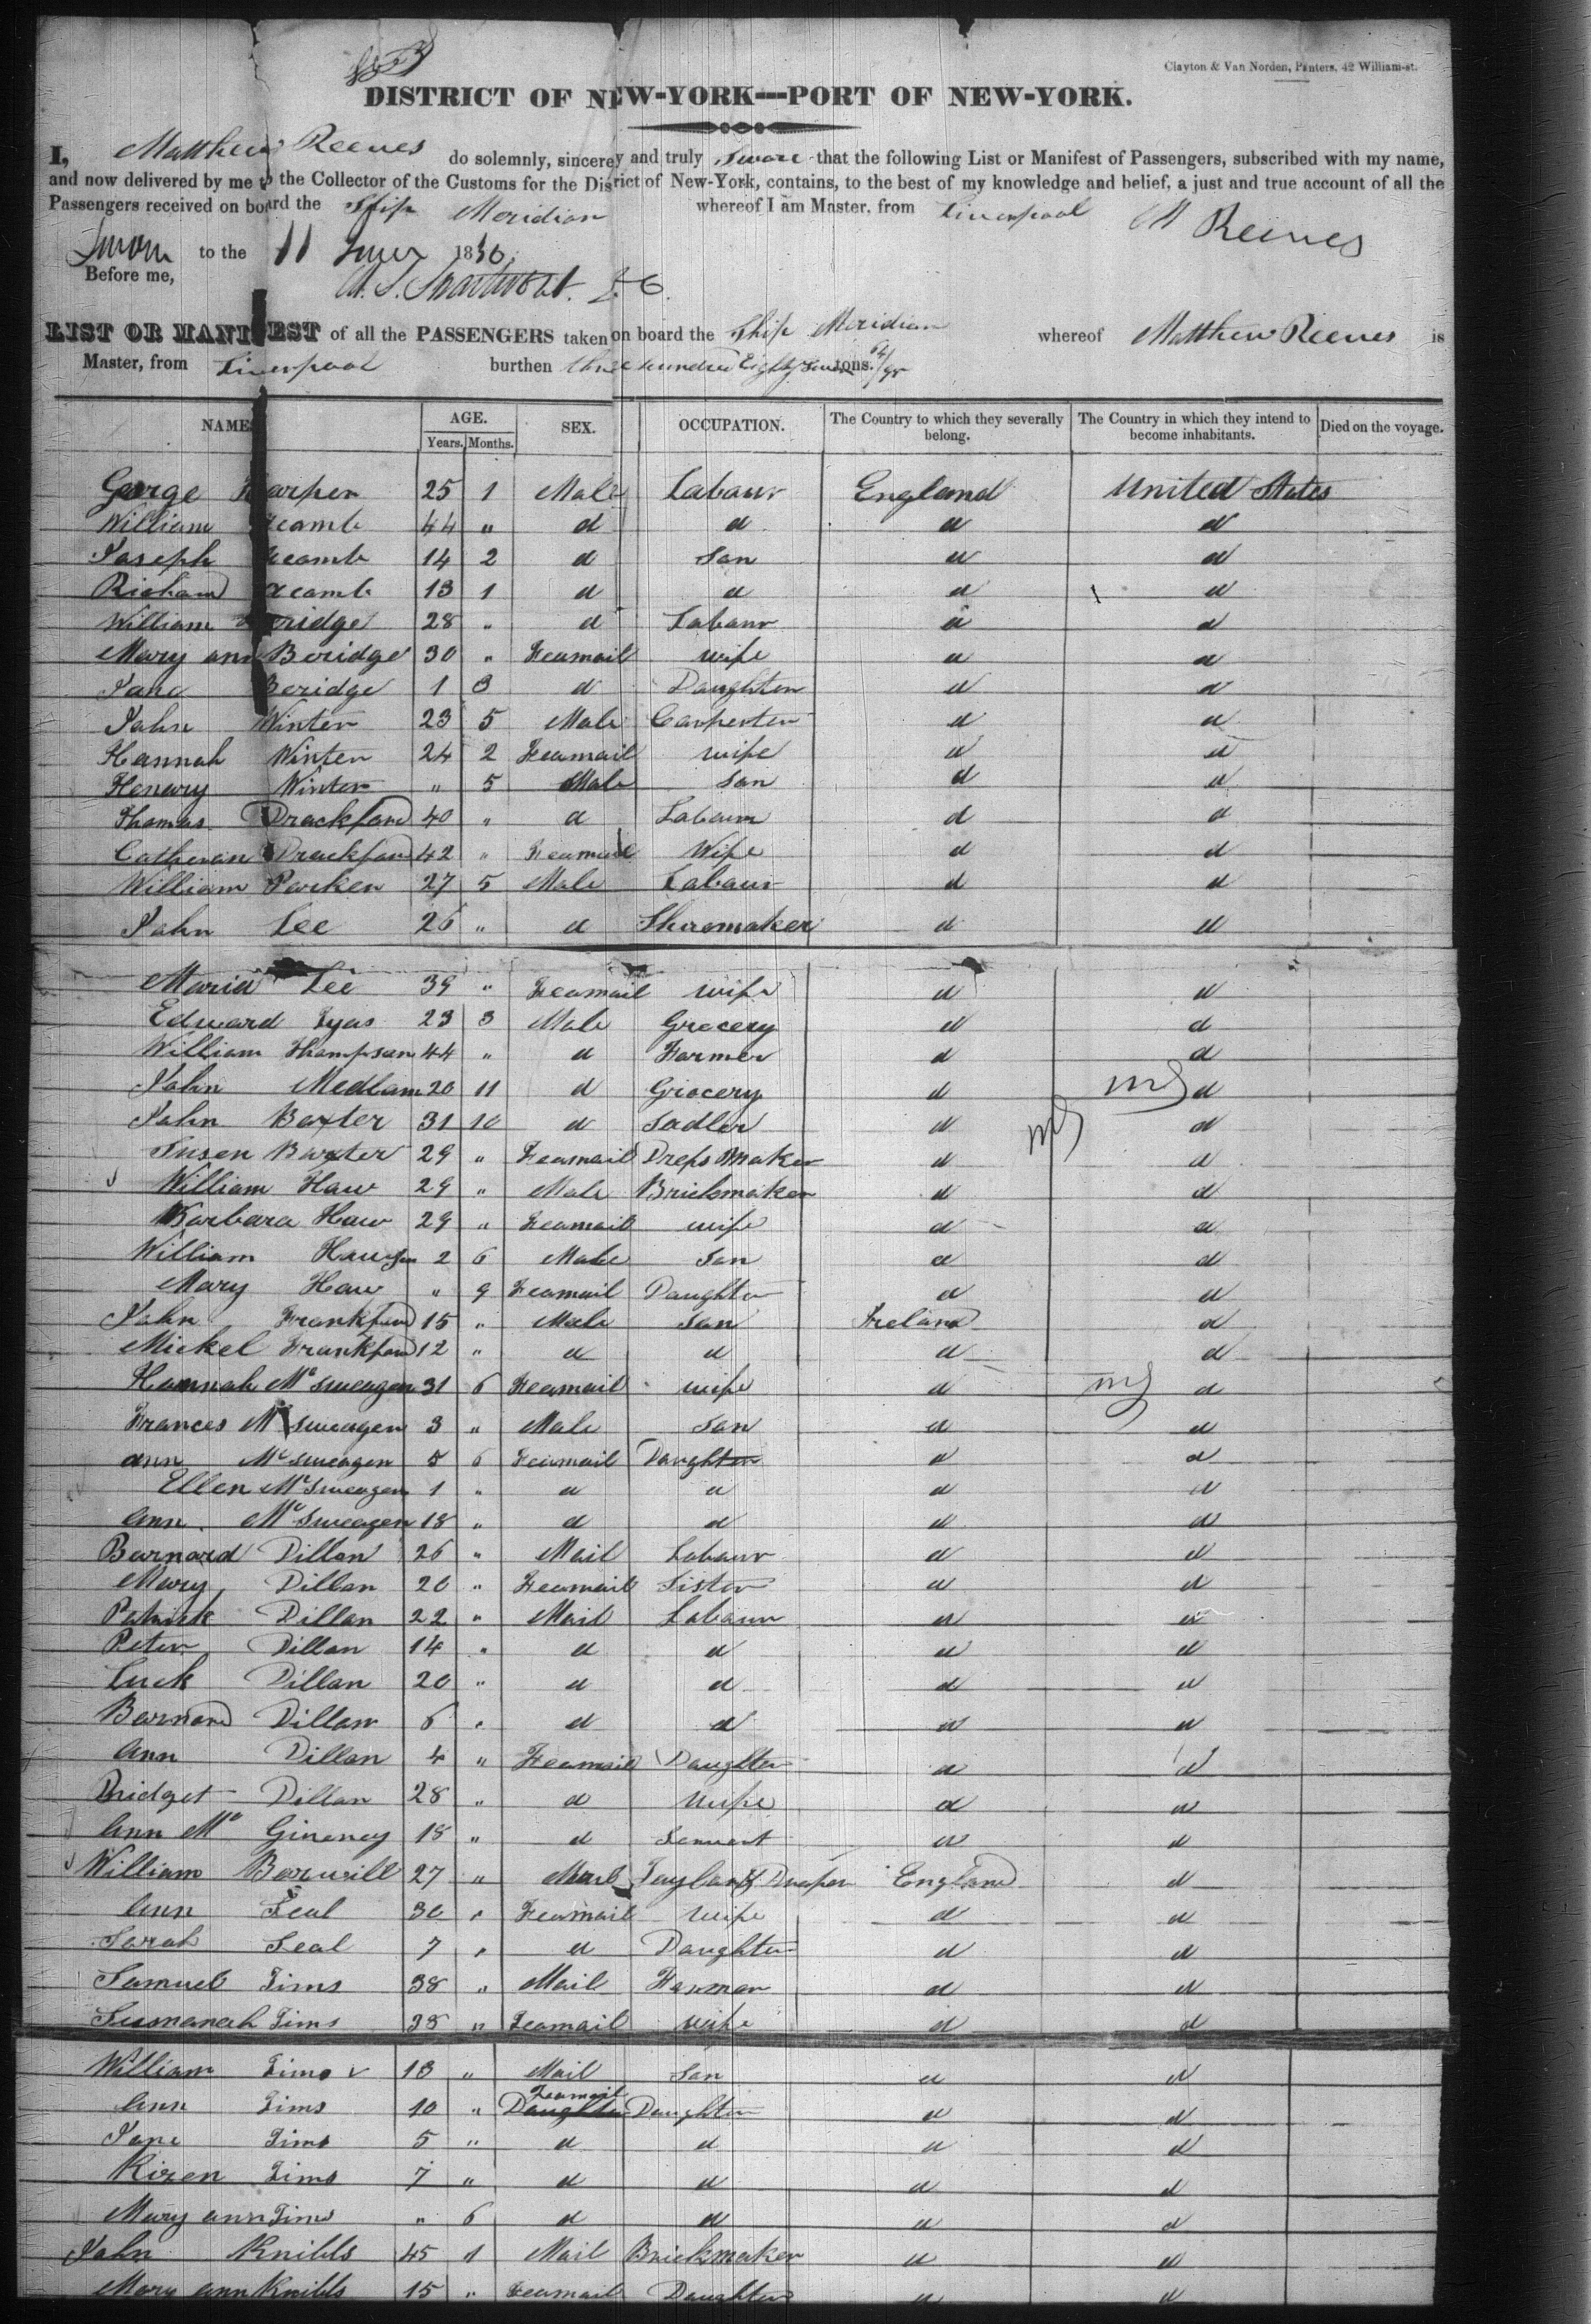 Clayton & Van Norden, Printers, 42 William-st.
DISTRICT OF NEW-YORK—PORT OF NEW-YORK.
I, Matthew Reeves do solemnly, sincerely and truly swear that the following List or Manifest of Passengers, subscribed with my name,
and now delivered by me to the Collector of the Customs for the District of New-York, contains, to the best of my knowledge and belief, a just and true account of all the
Passengers received on board the Ship Meridian whereof I am Master, from Liverpool M Reeves
Sworn to the 11 June 1830
Before me,
LIST OR MANIFEST of all the PASSENGERS taken on board the Ship Meridian whereof Matthew Reeves is
Master, from Liverpool burthen three hundred Eighty Seven tons.
NAME AGE. SEX. OCCUPATION. The Country to which they severally belong. The Country in which they intend to become inhabitants. Died on the voyage.
Years. Months.
George Harper 25 1 Male Labaur England United States
William 44 " d d d d
Joseph 14 2 d San d d
Richard 13 1 d d d d
William Beridge 28 " d Labaur d d
Mary ann Beridge 30 " Feamail wife d d
Jane Beridge 1 3 d Daughter d d
Jahn Winter 23 5 Male Carpenter d d
Hannah Winter 24 2 Feamail wife d d
Henary Winter " 5 Male San d d
Thomas Drackford 40 " d Labaur d d
Catheran Drackford 42 " Feamail Wife d d
William Parker 27 5 Male Labaur d d
Jahn Lee 26 " d Shoemaker d d
Maria Lee 39 " Feamail wife d d
Edward Tyas 23 3 Male Grocery d d
William Thampsan 44 " d Farmer d d
Jahn Medlam 20 11 d Griocery d d
Jahn Baxter 31 10 d Sadler d d
Susen Baxter 29 " Feamail Dress Maker d d
William Haw 29 " Male Brickmaker d d
Barbara Haw 29 " Feamail wife d d
William Haw Jun 2 6 Male San d d
Mary Haw " 9 Feamail Daughter d d
Jahn Frankford 15 " Male San Ireland d
Mickel Frankford 12 " d d d d
Hannah Mc sweagen 31 6 Feamail wife d d
Frances Mc sweagen 3 " Male San d d
ann Mc sweagen 5 6 Feamail Daughter d d
Ellen Mc sweagen 1 " d d d d
ann Mc sweagen 18 " d d d d
Barnard Dillan 26 " Mail Labaur d d
Mary Dillan 20 " Feamail Sister d d
Patrick Dillan 22 " Mail Labaur d d
Peter Dillan 14 " d d d d
Luck Dillan 20 " d d d d
Barnard Dillan 6 " d d d d
ann Dillan 4 " Feamail Daughter d d
Bridget Dillan 28 " d Wife d d
ann Mc Gineney 18 " d Servent d d
William Barwill 27 " Mail Taylor & Draper England d
ann Seal 30 " Feamail wife d d
Sarah Seal 7 " d Daughter d d
Samuel Tims 38 " Mail Farmer d d
Susmanah Tims 38 " Feamail wife d d
William Tims 13 " Mail San d d
ann Tims 10 " Feamail Daughter Daughter d d
Jane Tims 5 " d d d d
Kiren Tims 7 " d d d d
Mary ann Tims " 6 d d d d
Jahn Knibbs 45 1 Mail Brickmaker d d
Mary ann Knibbs 15 " Feamail Daughter d d